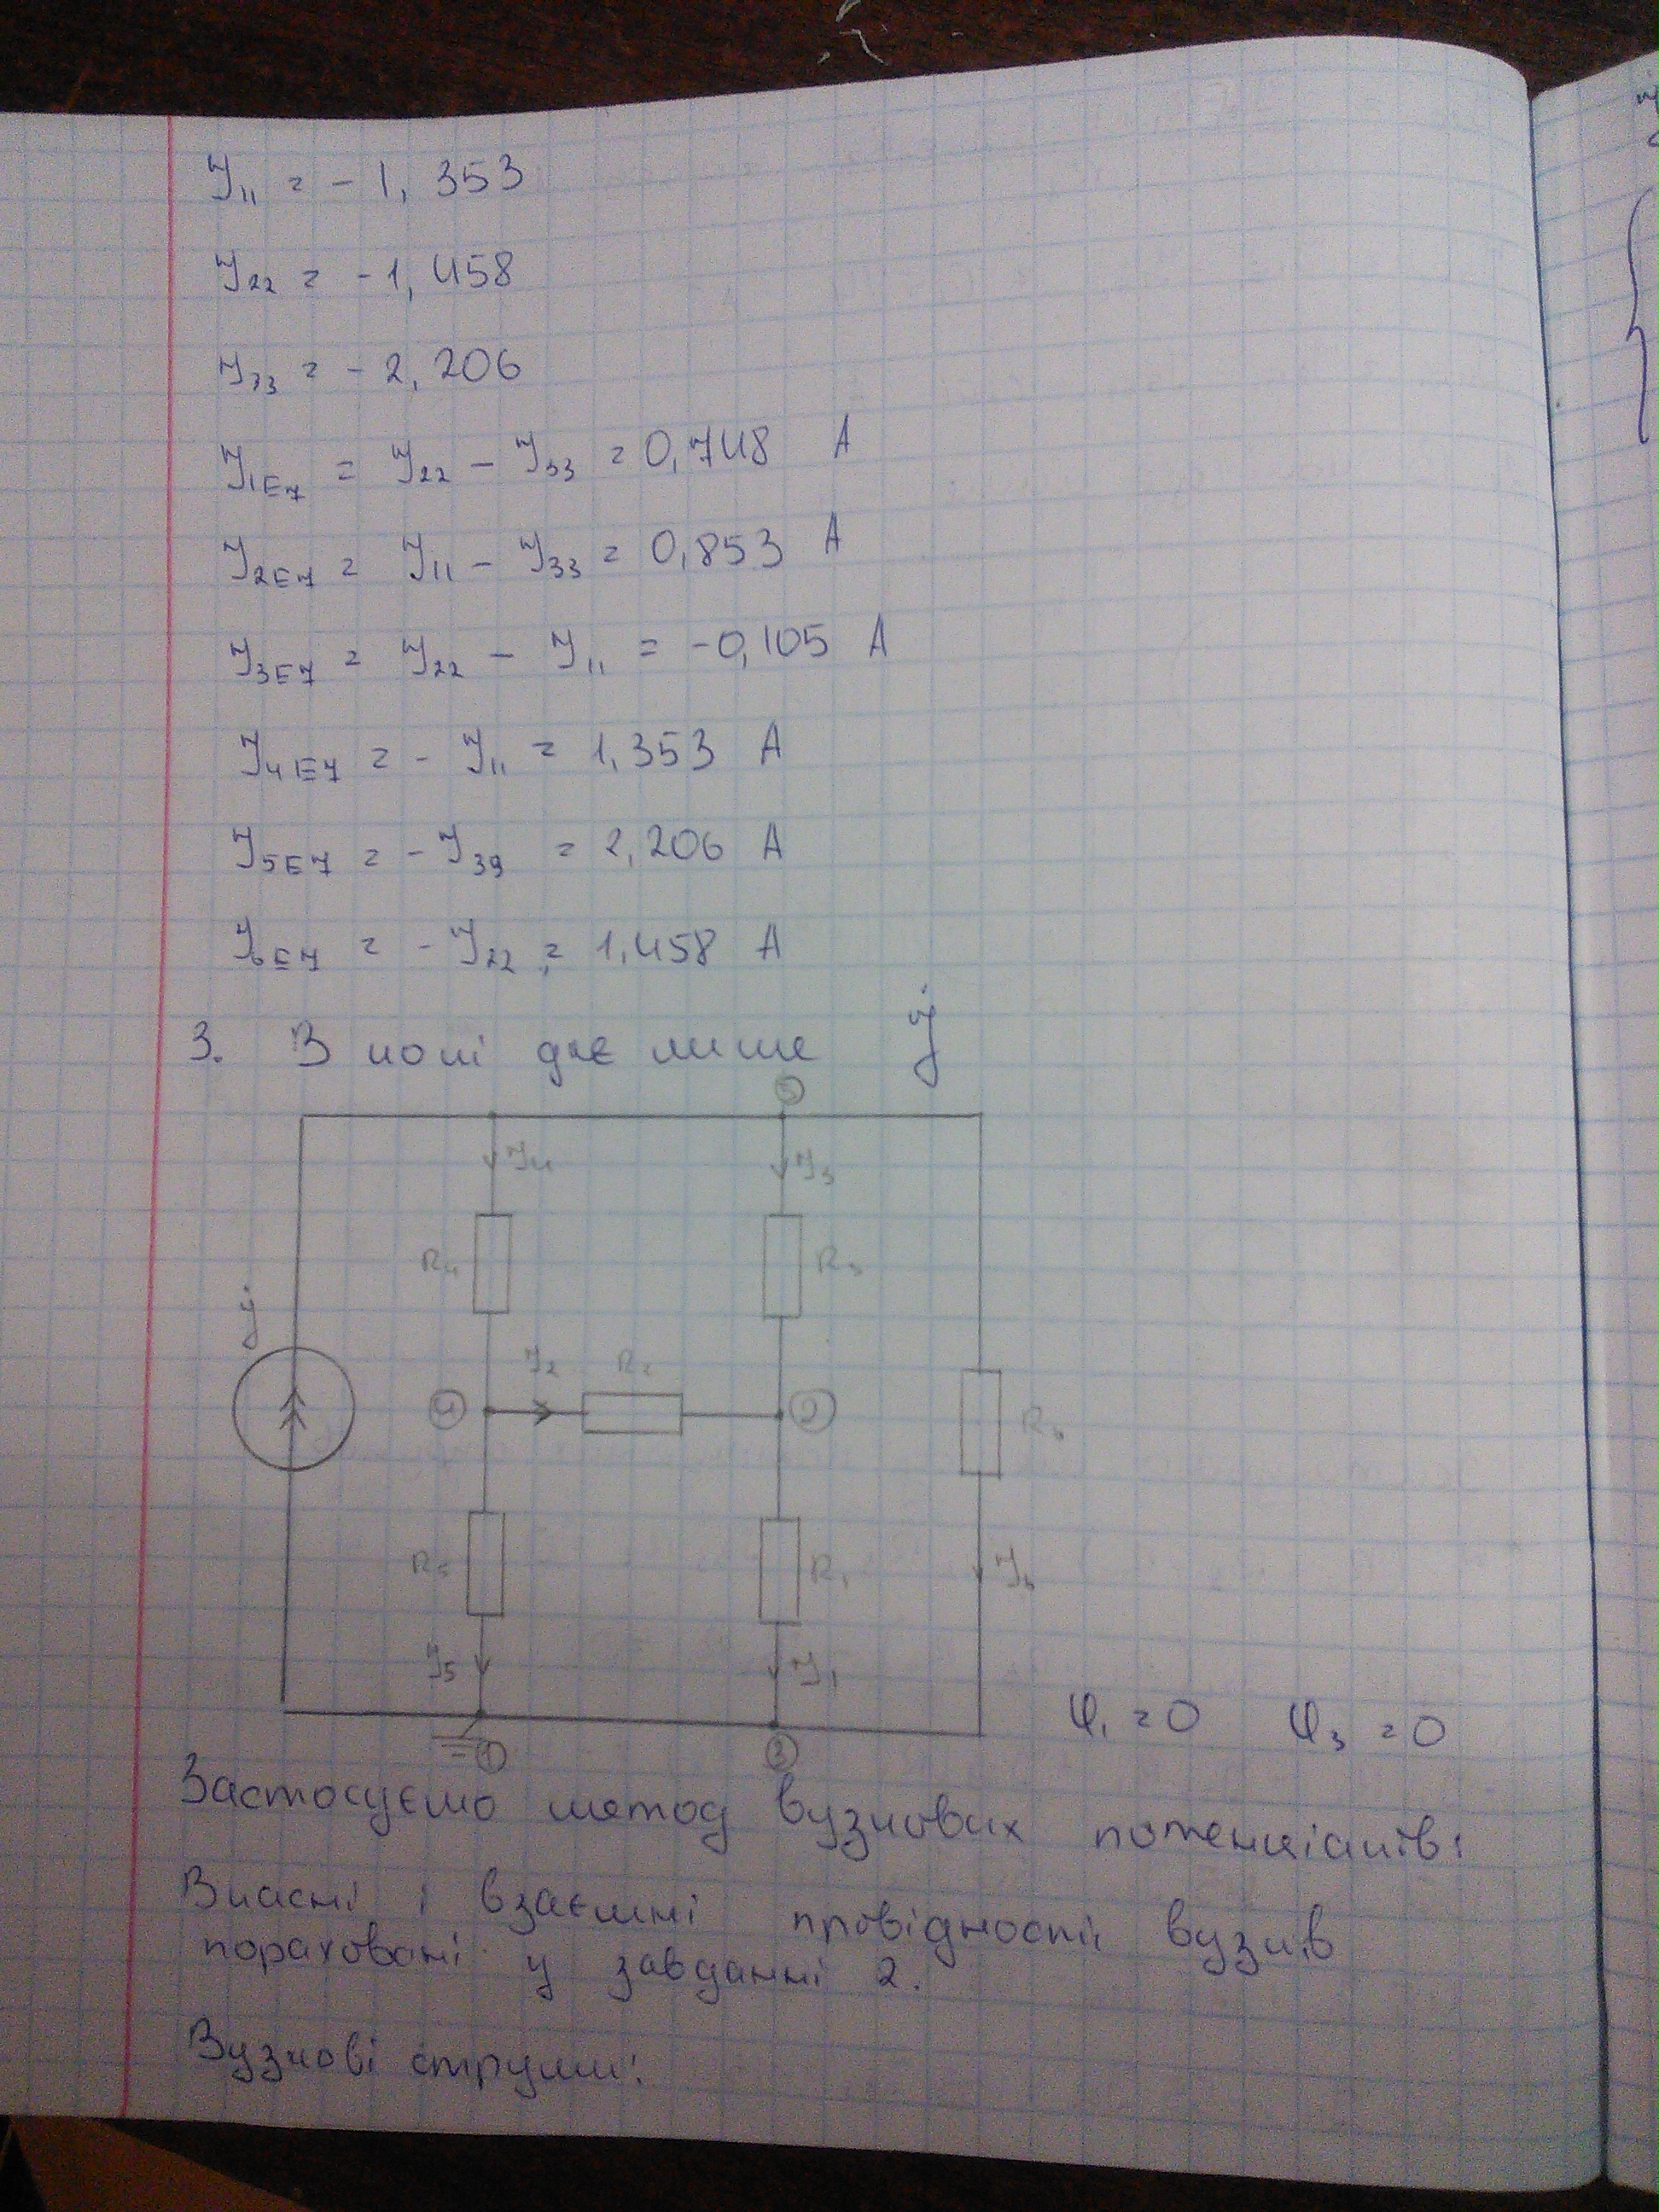 I₁₁ = - 1,353
I₂₂ = - 1,458
I₃₃ = - 2,206
I₁E7 = I₂₂ - I₃₃ = 0,748 A
I₂E7 = I₁₁ - I₃₃ = 0,853 A
I₃E7 = I₂₂ - I₁₁ = -0,105 A
I₄E7 = - I₁₁ = 1,353 A
I₅E7 = - I₃₃ = 2,206 A
I₆E7 = - I₂₂ = 1,458 A
3. В колі діє лише j
5
I₄ I₃
R₄ R₃
j
I₂ R₂
4 2 R₆
R₅ R₁ I₆
I₅ I₁
φ₁ = 0 φ₃ = 0
1 3
Застосуємо метод вузлових потенціалів:
Власні і взаємні провідності вузлів
пораховані у завданні 2.
Вузлові струми: